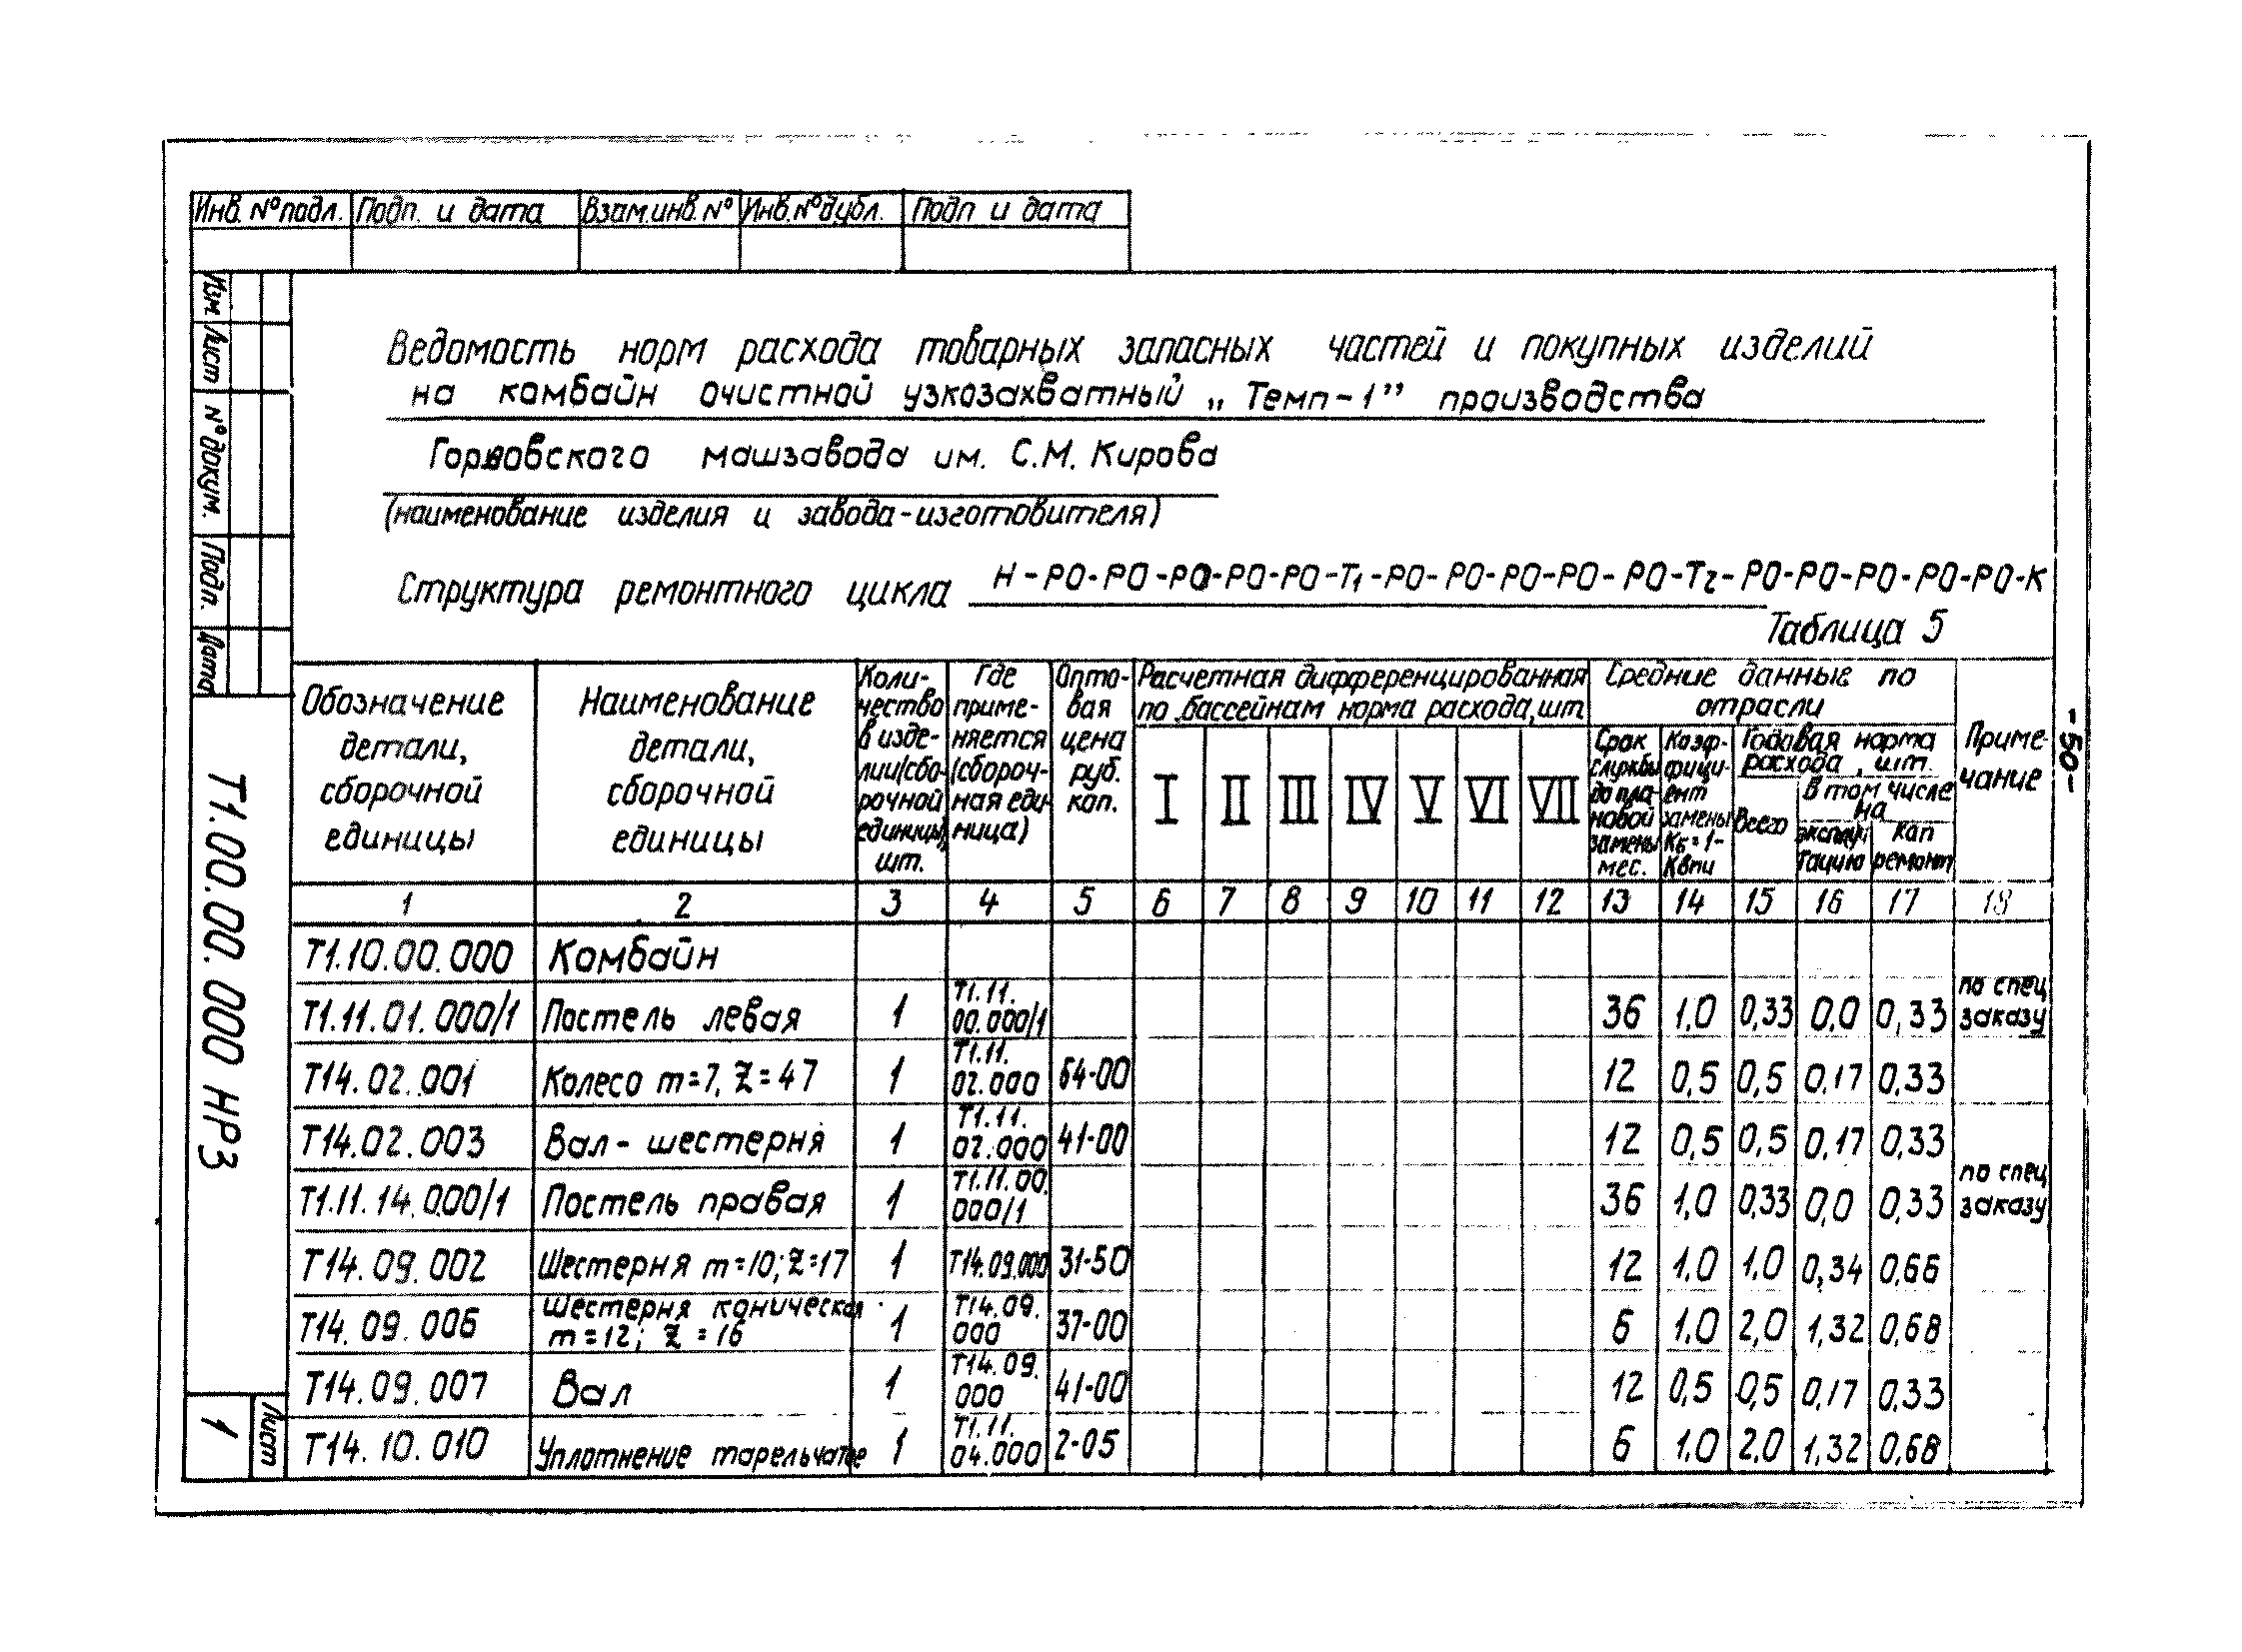 Инв. № подл. Подп. и дата Взам.инв.№ Инв.№дубл. Подп и дата
Изм. Лист № докум. Подп. Дата
Ведомость норм расхода товарных запасных частей и покупных изделий
на комбайн очистной узкозахватный „Темп-1” производства
Горловского машзавода им. С.М. Кирова
(наименование изделия и завода-изготовителя)
Структура ремонтного цикла Н-РО-РО-РО-РО-РО-Т1-РО-РО-РО-РО-РО-Т2-РО-РО-РО-РО-РО-К
Таблица 5
Обозначение
детали,
сборочной
единицы
Наименование
детали,
сборочной
единицы
Коли-
чество
в изде-
лии(сбо-
рочной
единицы),
шт.
Где
приме-
няется
(сбороч-
ная еди-
ница)
Опто-
вая
цена
руб.
коп.
Расчетная дифференцированная
по бассейнам норма расхода, шт
I II III IV V VI VII
Средние данные по
отрасли
Срок
службы
до пла-
новой
замены
мес.
Коэф-
фици-
ент
замены
Кб=1-
Квпи
Годавая норма
расхода, шт.
Всего
В том числе
на
эксплуа
тацию
кап
ремонт
Приме-
чание
1 2 3 4 5 6 7 8 9 10 11 12 13 14 15 16 17 18
Т1.10.00.000 Комбайн
Т1.11.01.000/1 Постель левая 1 Т1.11.00.000/1 36 1,0 0,33 0,0 0,33 по спец заказу
Т14.02.001 Колесо m=7, Z=47 1 Т1.11.02.000 64-00 12 0,5 0,5 0,17 0,33
Т14.02.003 Вал-шестерня 1 Т1.11.02.000 41-00 12 0,5 0,5 0,17 0,33
Т1.11.14.000/1 Постель правая 1 Т1.11.00.000/1 36 1,0 0,33 0,0 0,33 по спец заказу
Т14.09.002 Шестерня m=10; Z=17 1 Т14.09.000 31-50 12 1,0 1,0 0,34 0,66
Т14.09.006 Шестерня коническая m=12; Z=16 1 Т14.09.000 37-00 6 1,0 2,0 1,32 0,68
Т14.09.007 Вал 1 Т14.09.000 41-00 12 0,5 0,5 0,17 0,33
Т14.10.010 Уплотнение тарельчатое 1 Т1.11.04.000 2-05 6 1,0 2,0 1,32 0,68
Т1.00.00.000 НРЗ
Лист
1
-50-